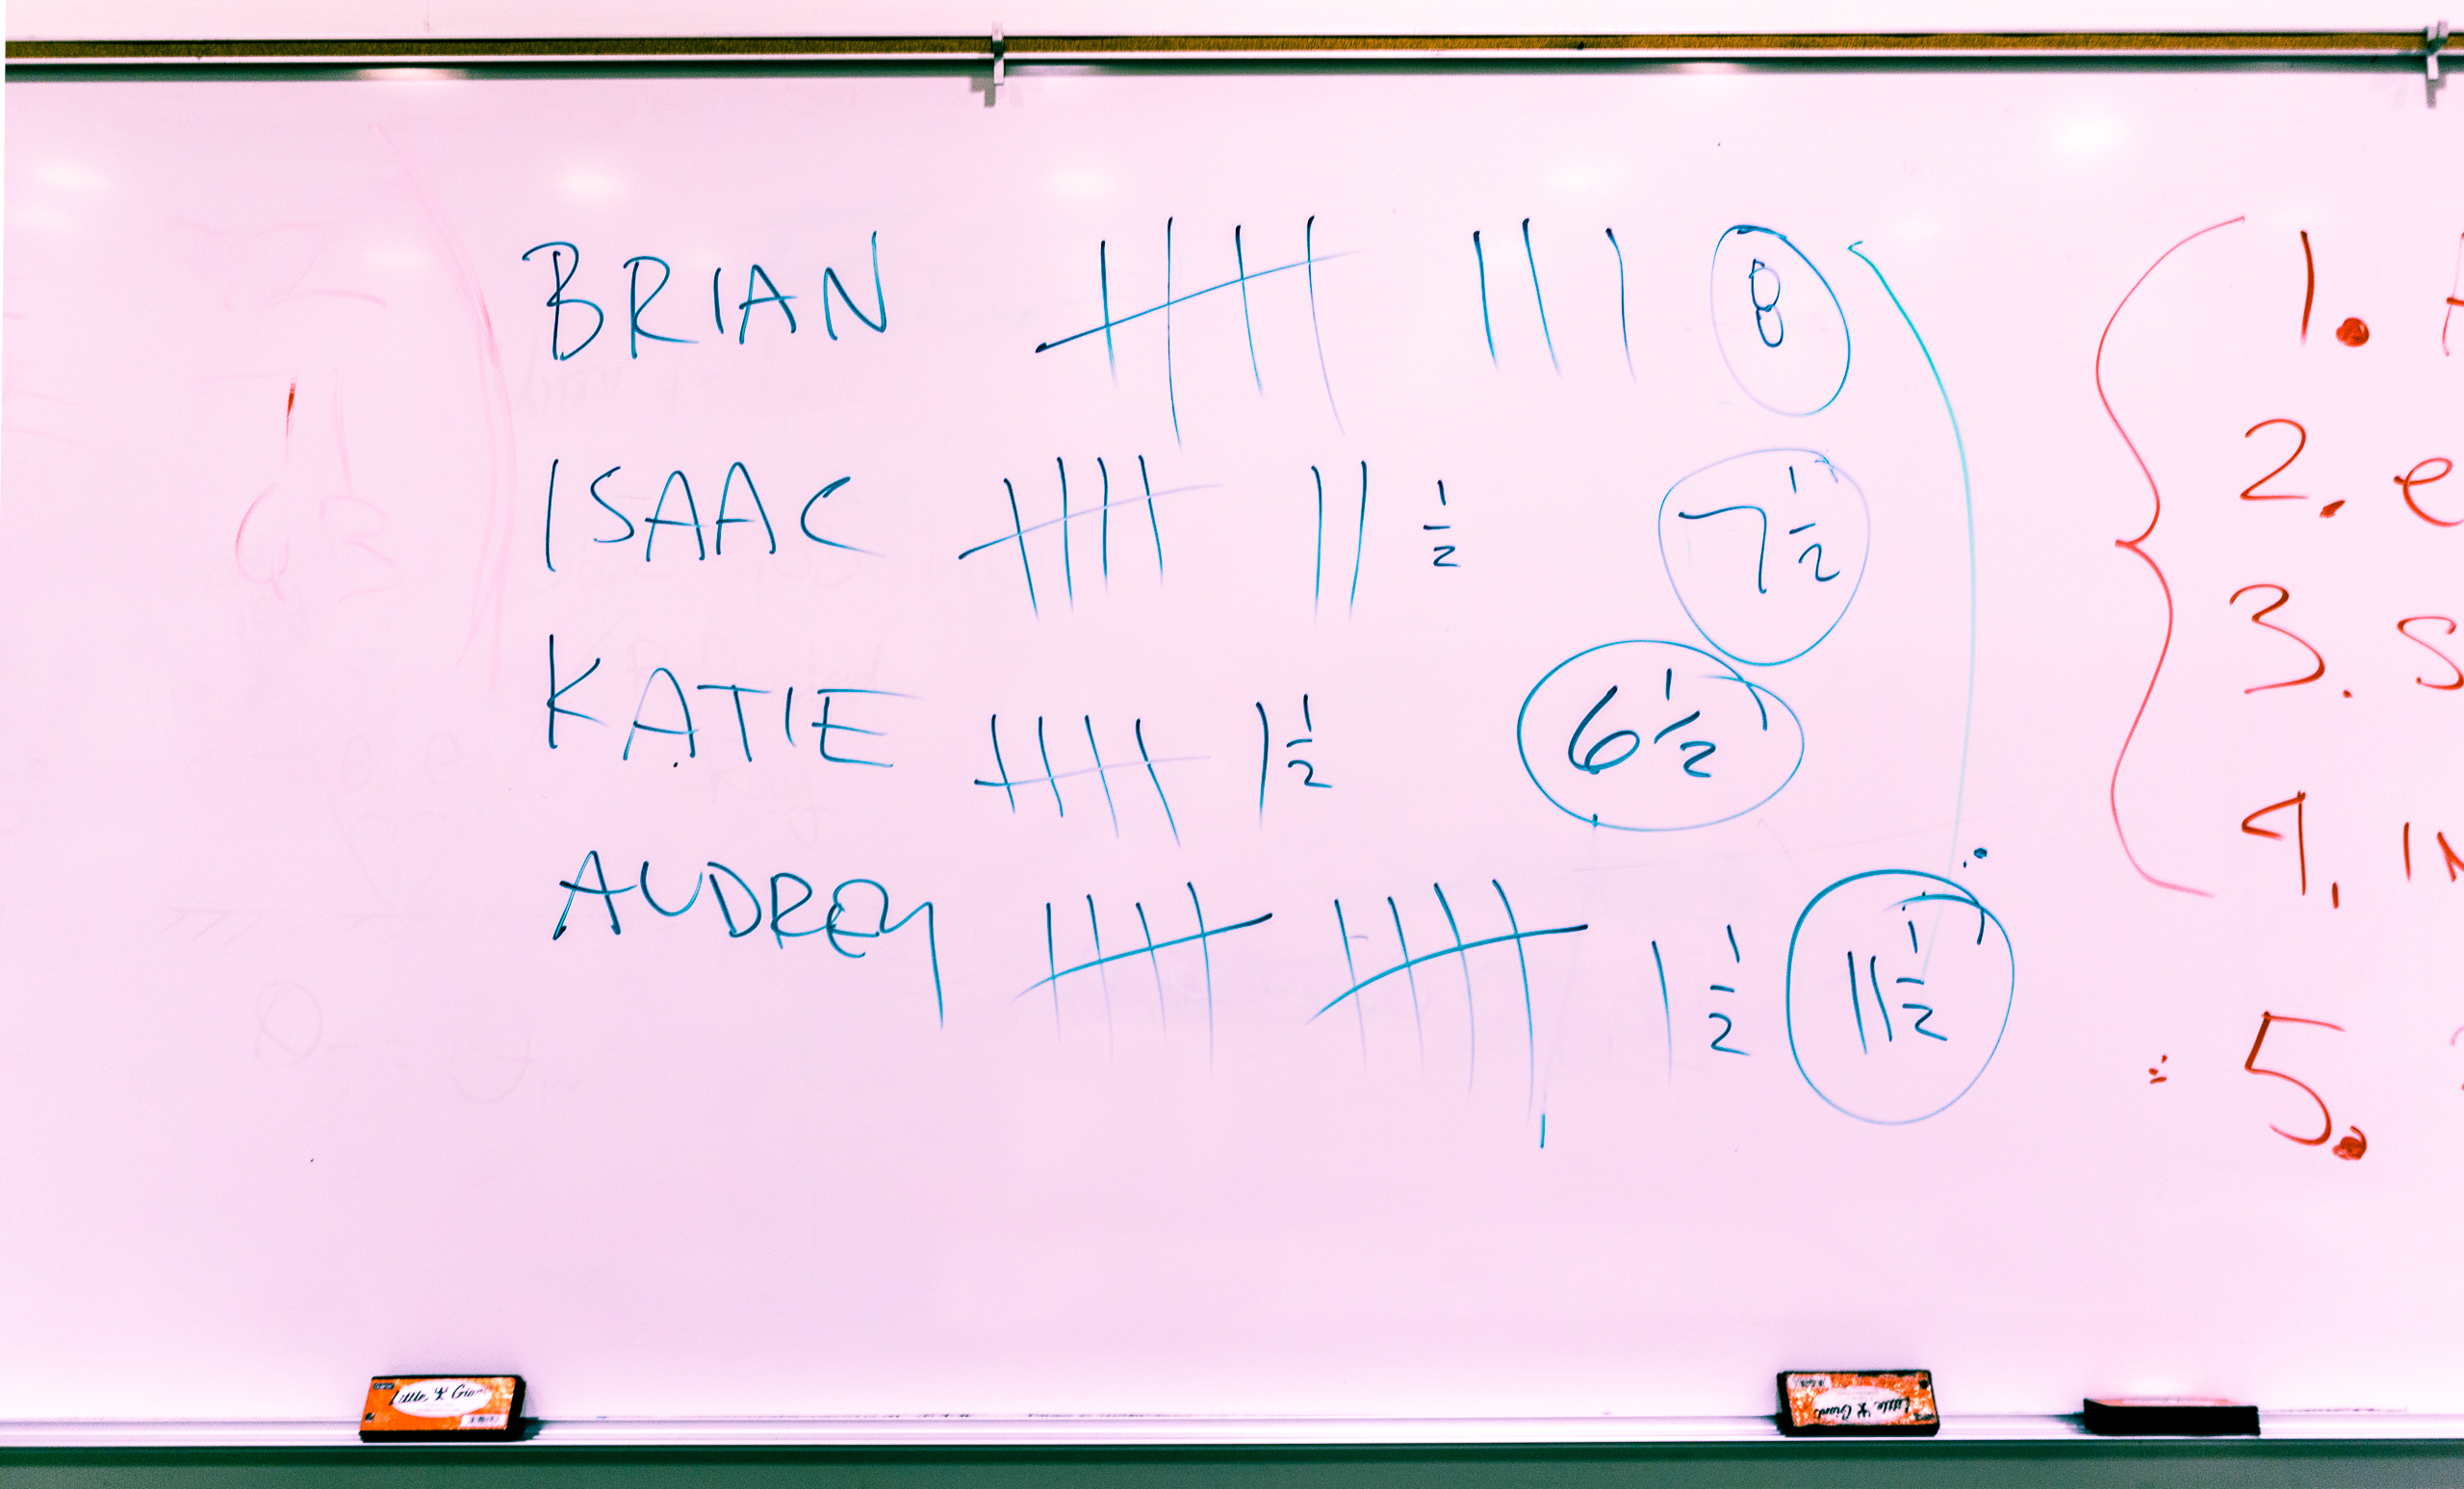 BRIAN 8
ISAAC 1/2 7 1/2
KATIE 1/2 6 1/2
AUDREY 1/2 11 1/2
1.
2. e
3. S
4. IN
5.
Little Giant
Little Giant